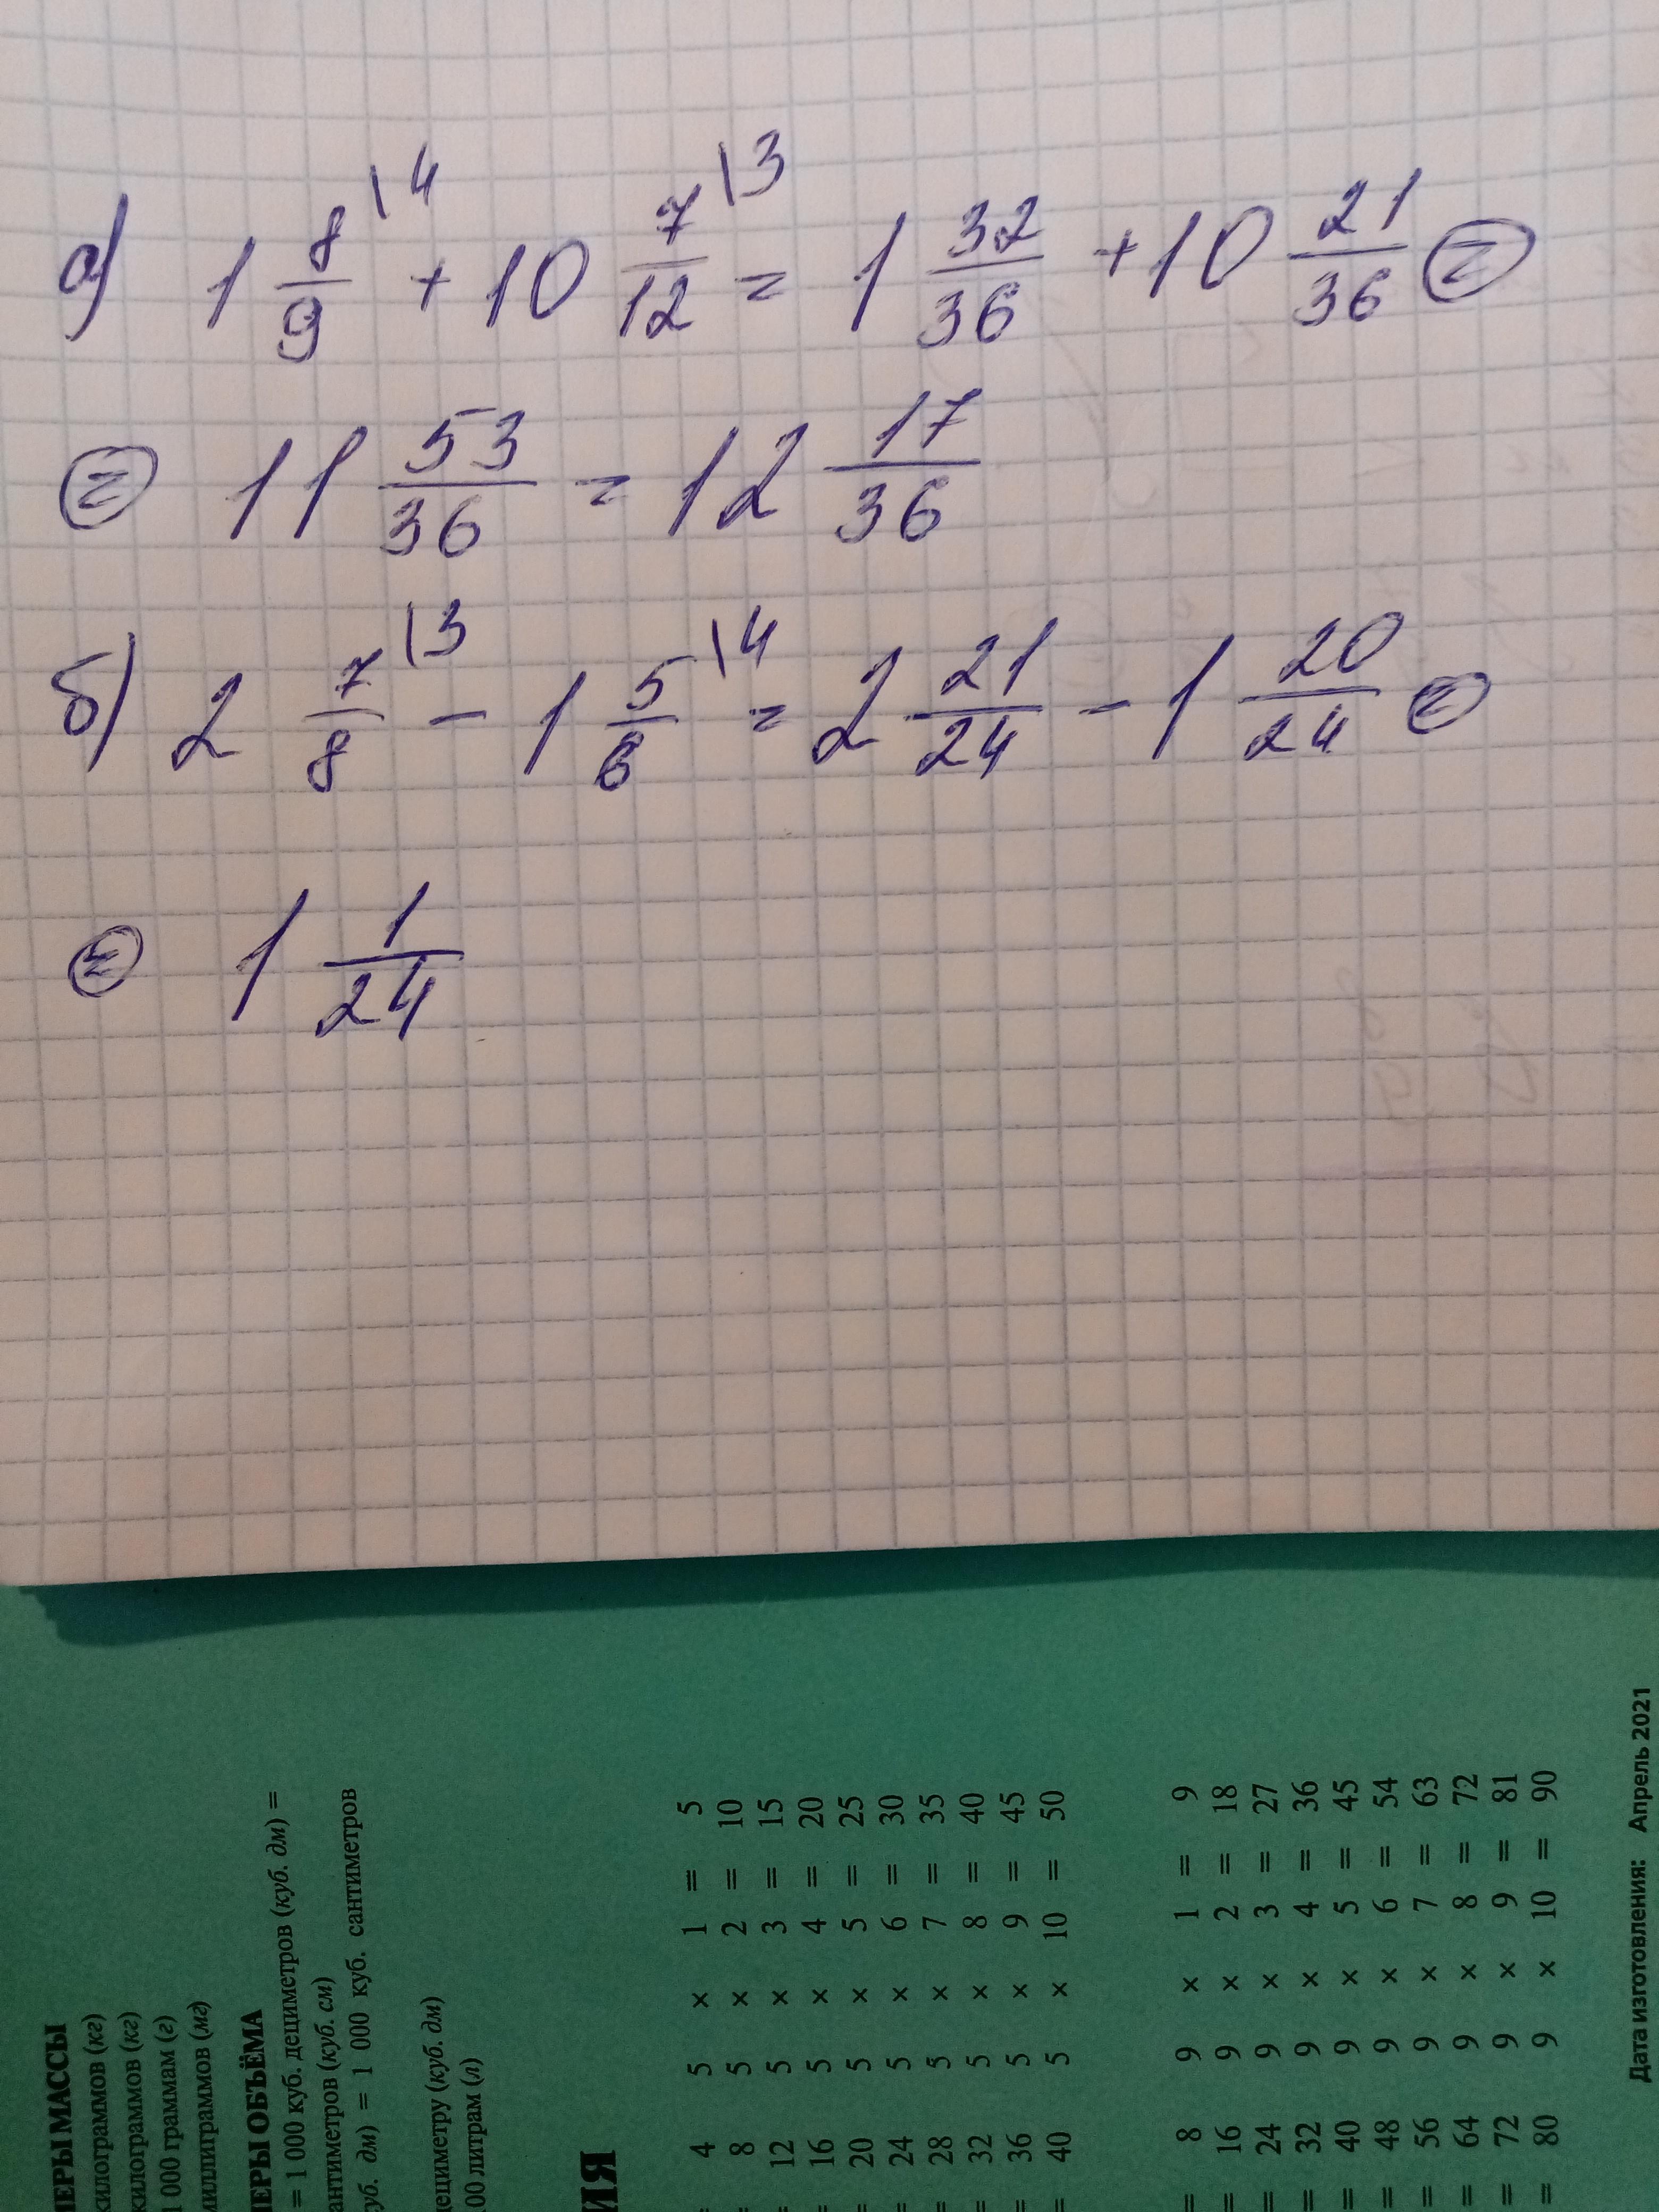 а) 1 8/9 \4 + 10 7/12 \3 = 1 32/36 + 10 21/36 =
= 11 53/36 = 12 17/36
б) 2 7/8 \3 - 1 5/6 \4 = 2 21/24 - 1 20/24 =
= 1 1/24
МЕРЫ МАССЫ
килограммов (кг)
килограммов (кг)
1 000 граммам (г)
миллиграммов (мг)
МЕРЫ ОБЪЁМА
= 1 000 куб. дециметров (куб. дм) =
сантиметров (куб. см)
куб. дм) = 1 000 куб. сантиметров
дециметру (куб. дм)
100 литрам (л)
ИЯ
= 4
= 8
= 12
= 16
= 20
= 24
= 28
= 32
= 36
= 40
5 × 1 = 5
5 × 2 = 10
5 × 3 = 15
5 × 4 = 20
5 × 5 = 25
5 × 6 = 30
5 × 7 = 35
5 × 8 = 40
5 × 9 = 45
5 × 10 = 50
= 8
= 16
= 24
= 32
= 40
= 48
= 56
= 64
= 72
= 80
9 × 1 = 9
9 × 2 = 18
9 × 3 = 27
9 × 4 = 36
9 × 5 = 45
9 × 6 = 54
9 × 7 = 63
9 × 8 = 72
9 × 9 = 81
9 × 10 = 90
Дата изготовления: Апрель 2021